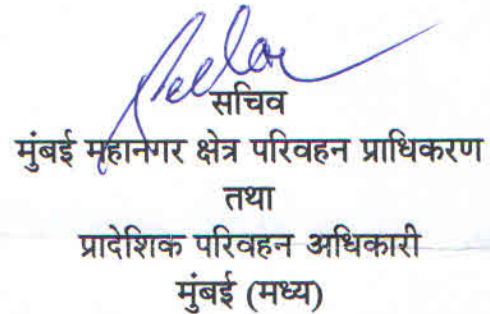 सचिव
मुंबई महानगर क्षेत्र परिवहन प्राधिकरण
तथा
प्रादेशिक परिवहन अधिकारी
मुंबई (मध्य)